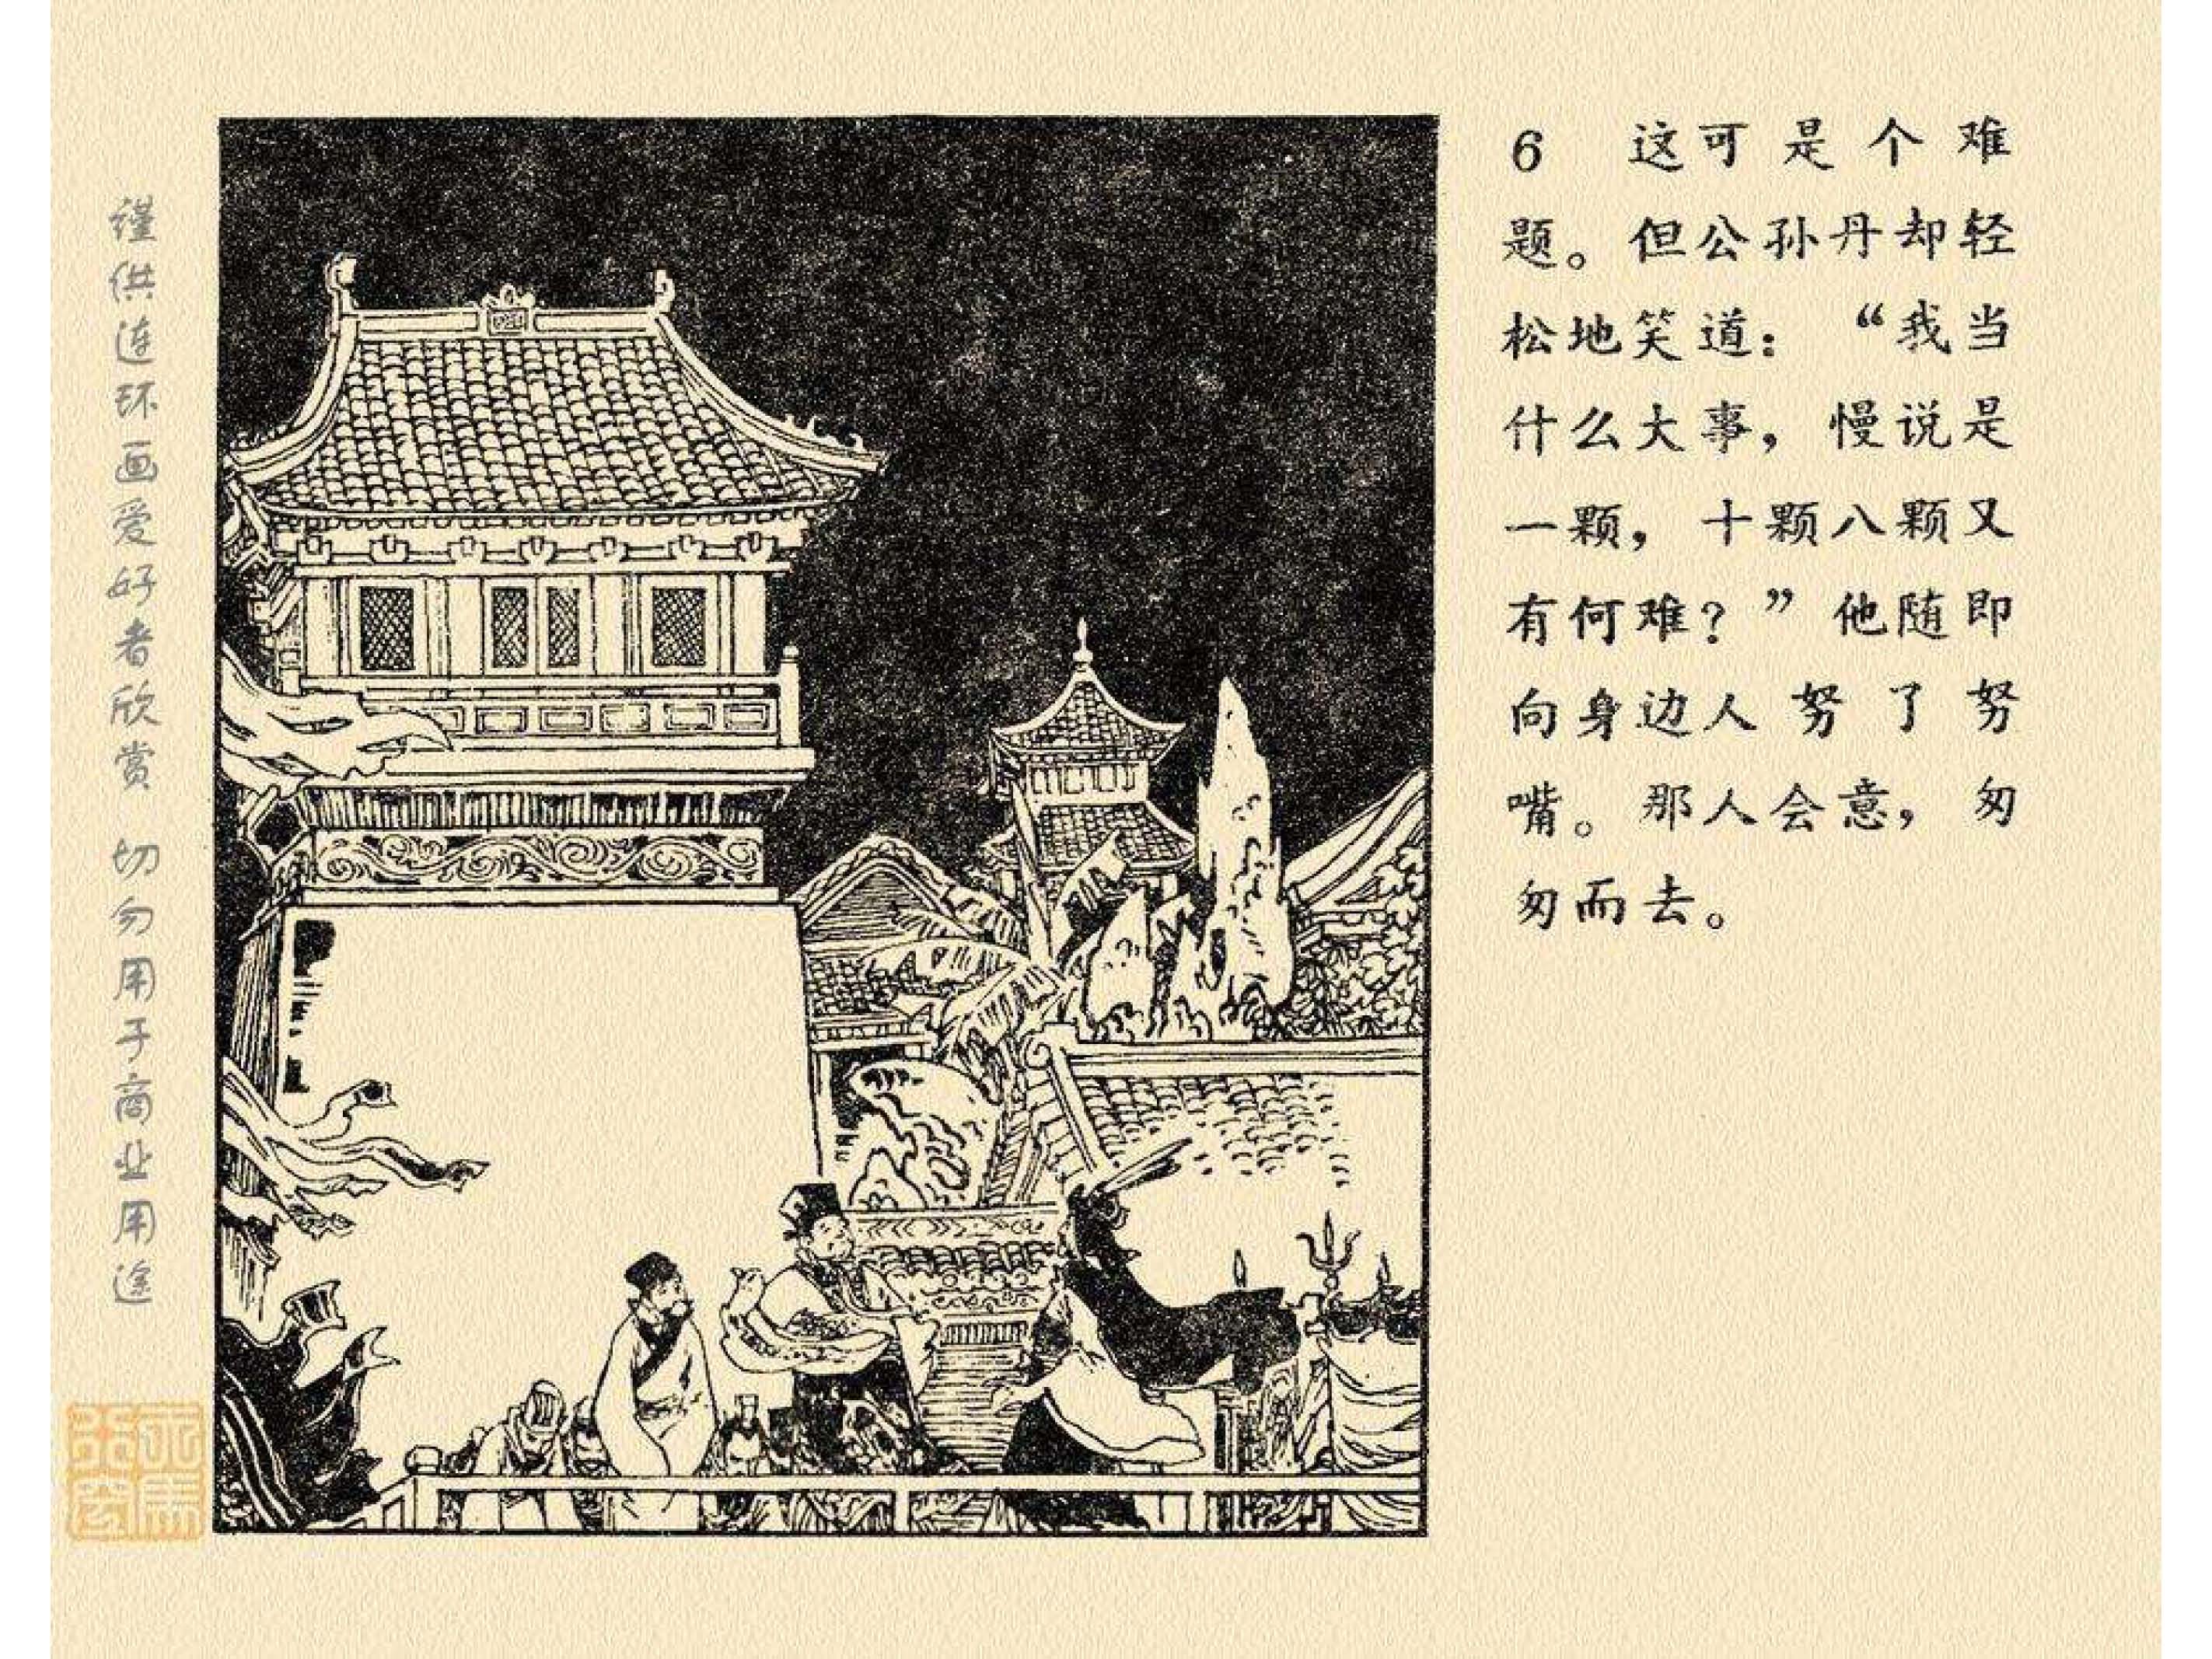 6 这可是个难
题。但公孙丹却轻
松地笑道：“我当
什么大事，慢说是
一颗，十颗八颗又
有何难？”他随即
向身边人努了努
嘴。那人会意，匆
匆而去。
谨供连环画爱好者欣赏 切勿用于商业用途